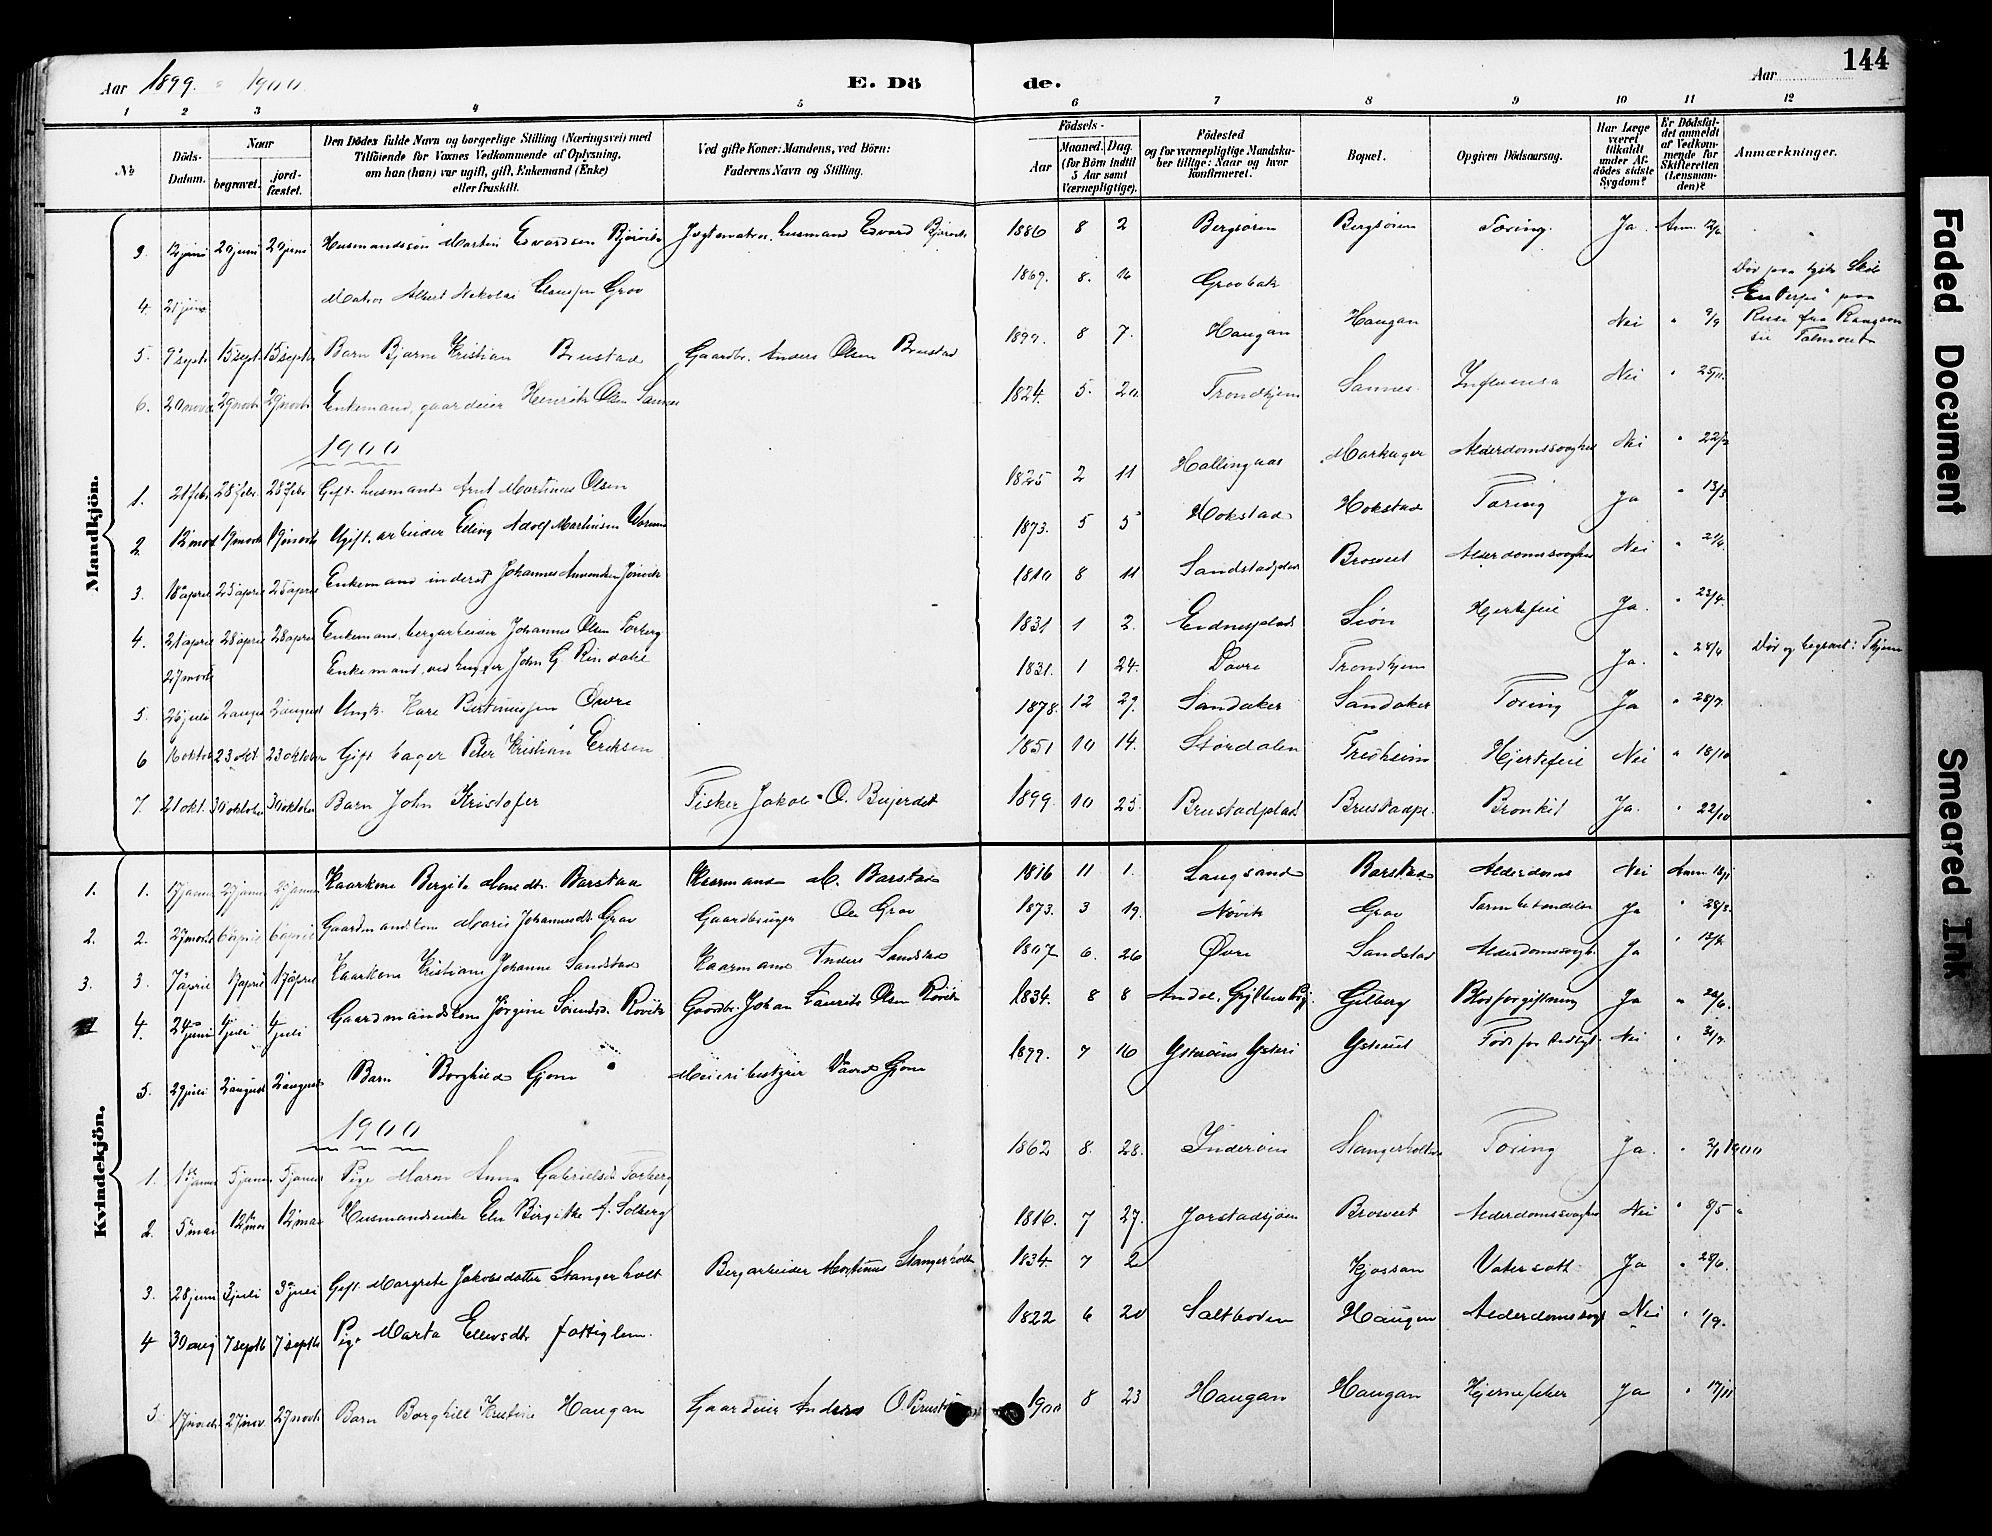 144
Aar 1899. - 1900
E. Dö de.
Aar
1 2 3 4 5 6 7 8 9 10 11 12
No
Döds-Datum.
Naar
begravet.
jord-fæstet.
Den Dödes fulde Navn og borgerlige Stilling (Næringsvei) med
Tilföiende for Voxnes Vedkommende af Oplysning,
om han (hun) var ugift, gift, Enkemand (Enke)
eller fraskilt.
Ved gifte Koner: Mandens, ved Börn:
Faderens Navn og Stilling.
Födsels-
Aar
Maaned. Dag.
(for Börn indtil
5 Aar samt
Værnepligtige).
Födested
og for værnepligtige Mandsku-
ber tillige: Naar og hvor
konfirmeret.
Bopæl.
Opgiven Dödsaarsag.
Har Læge
været
tilkaldt
under Af-
dödes sidste
Sygdom?
Er Dödsfal-
det anmeldt
af Vedkom-
mende for
Skifteretten
(Lensman-
den)?
Anmærkninger.
Mandkjön.
3. 12 juni 29 juni 29 juni Husmandssøn Martin Edvardsen Bjørvik husmand Edvard Bjørvik 1886 8 2 Bergsøren Bergsøren Tæring. Ja Anm.
4. 21 juni Matros Albert Nikolai Claussen Grov 1869. 8. 16 Grovbak Død paa
paa
Reise fra
til
5. 9 sept 15 sept 15 sept Barn Bjarne Kristian Brustad Gaardbr. Anders Olsen Brustad 1899. 8 7. Haugan Haugan Nei " 9/9
6. 20 novb 29 novb 29 novb Enkemand, gaardeier Henrik Olsen Sannes 1824. 5. 20. Trondhjem Sannes Influensa Nei " 25/11.
1900
1. 21 feb 28 feb. 28 feb Gift husmand Arnt Martinus Olsen 1825 2 11 Hallingaas Markager Alderdomssvaghed Nei "
2. 12 marts 19 marts 19 marts Ugift. arbeider Elling Adolf Martinsen 1873. 5 5 Hokstad Hokstad Tæring Ja " 13/3
3. 18 april 25 april 25 april Enkemand inderst Johannes 1810 8 11 Sandstadplads Brosveet Alderdomssvaghed Nei "
4. 21 april 28 april 28 april Enkemand, bergarbeider Johannes Olsen Forberg 1831 1 2. Eidnesplads Sion Hjertefeil Ja. " 23/4.
27 marts Enkemand, vedhugger John G. Rindahl 1831. 1 24. Dovre Trondhjem Ja. " Død og begravet i Thjem
5. 26 juli 2 august 2 august Ungk. Kare Bertinussen Øvre 1878. 12 29. Sandaker Sandaker Tæring Ja " 28/7.
6 16 oktob 23 okt 23 oktober Gift bager Peter Kristian Eriksen 1851 10 14. Størdalen Tresheim Hjertefeil Nei " 18/10
7. 21 okt. 30 oktober 30 oktober Barn John Kristofer Fisker Jakob O. 1899. 10 25. Brustadplads Brustadpl. Bronkit Ja. " 22/10
Kvindekjön.
1. 1. 17 januar 27 januar 27 januar Kaarkone Bergite Barstad Kaarmand M. Barstad 1816 11 1. Langsand Barstad Alderdoms Nei Anm.
2. 2. 27 marts 6 april 6 april Gaardmandskone Marie Johannesdt. Grov Gaardbruger Ole Grov 1873. 3 19. Grov Ja "
3. 3. 7 april 17 april 17 april Kaarkone Kristiane Johanne Sandstad Kaarmand Anders Sandstad 1807 6. 26 Øvre Sandstad Alderdomssvagh. Ja "
4. 24 juni 4 juli 4 juli Gaardmandskone Jørgine Sørensd. Røvik Gaardbr. Johan Laurits Olsen Røvik 1834. 8 8 Gilberg Blodforgiftning Ja "
5. 29 juli 2 august 2 august Barn Borghild Gjone Meieribestyrer Gjone 1899. 7 16 Ystveet Født for tidligt. Nei " 31/7.
1900
1. 5 januar 5 januar Pige Maren Anna Gabrielsd. Forberg 1862 8. 28. Inderøen Stangerholt Tæring Ja. " 2/1 1900
2. 5 mai 12 mai 12 mai Husmandsenke Elen Birgitte A. Solberg 1816. 7 27. Jørstadsjøen Brosveet Alderdomssvaghed Nei " 8/5
3. 28 juni 3 juli 3 juli Gift Margrete Jakobsdatter Stangerholt Bergarbeider Martinus Stangerholt 1834. 7 2 Kjossan Vatersott Ja " 28/6.
4 30 aug 7 septb 7 septb Pige Marta Ellevsdt. fattiglem. 1822 6 20 Saltboden Haugen Alderdomssvagh Nei " 1/9.
5. 17 novb. 27 nov 27 novb Barn Borghild Kristine Haugan Gaardeier Anders O. Brustad 1900 8 23 Haugan Haugan Ja " 17/11
Faded Document
Smeared Ink